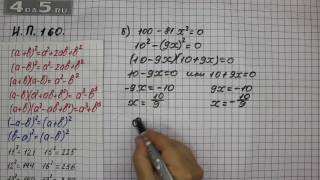 4 ДА 5
И.П. 160.
(a+b)²=a²+2ab+b²
(a-b)²=a²-2ab+b²
(a+b)(a-b)=a²-b²
(a-b)(a²+ab+b²)=a³-b³
(a+b)(a²-ab+b²)=a³+b³
(-a-b)²=(a+b)²
(b-a)²=(a-b)²
11²-121 15²=225
12²=144 16²=256
б) 100-81x²=0
10²-(9x)²=0
(10-9x)(10+9x)=0
10-9x=0 или 10+9x=0
-9x=-10 9x=-10
x=10/9 x=-10/9